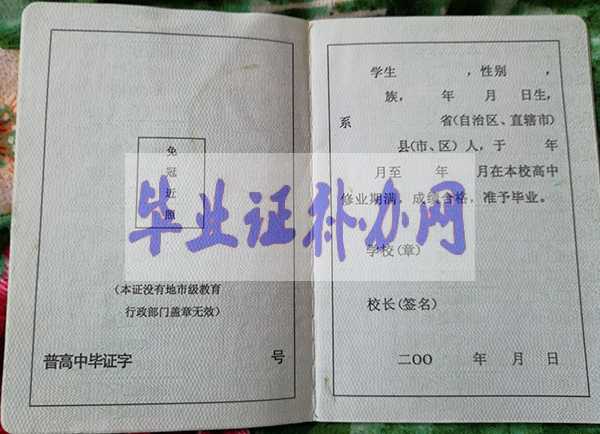 免
冠
近
照
(本证没有地市级教育
行政部门盖章无效)
普高中毕证字 号
学生 ,性别 ,
族, 年 月 日生,
系 省(自治区、直辖市)
县(市、区)人,于 年
月至 年 月在本校高中
修业期满,成绩合格,准予毕业。
学校(章)
校长(签名)
二OO 年 月 日
毕业证补办网